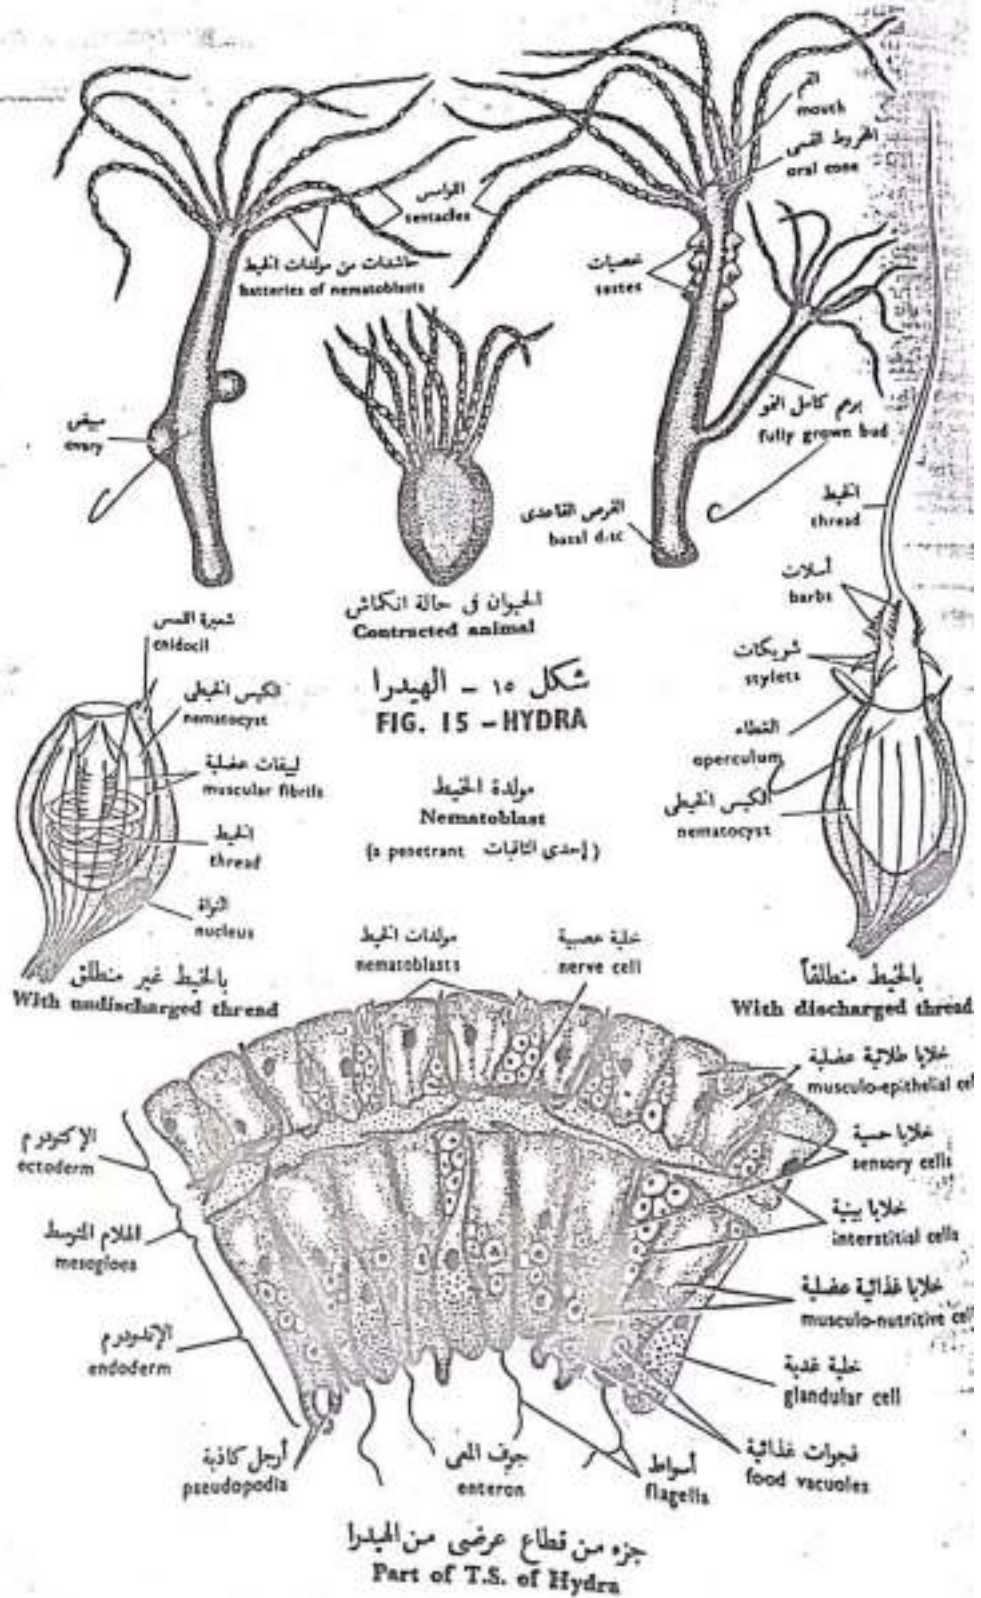 الفم
mouth
المخروط الفمى
oral cone
اللوامس
tentacles
حاشدات من مولدات الخيط
batteries of nematoblasts
خصيات
testes
مبيض
ovary
برعم كامل النمو
fully grown bud
القرص القاعدى
basal disc
الخيط
thread
أسلات
barbs
شويكات
stylets
الغطاء
operculum
الكيس الخيطى
nematocyst
بالخيط منطلقاً
With discharged thread
الحيوان فى حالة انكماش
Contracted animal
شكل ١٥ - الهيدرا
FIG. 15 - HYDRA
مولدة الخيط
Nematoblast
(a penetrant إحدى الثاقبات)
شعيرة اللمس
cnidocil
الكيس الخيطى
nematocyst
ليفات عضلية
muscular fibrils
الخيط
thread
النواة
nucleus
بالخيط غير منطلق
With undischarged thread
مولدات الخيط
nematoblasts
خلية عصبية
nerve cell
خلايا طلائية عضلية
musculo-epithelial cel
خلايا حسية
sensory cells
خلايا بينية
interstitial cells
خلايا غذائية عضلية
musculo-nutritive cel
خلية غدية
glandular cell
فجوات غذائية
food vacuoles
أسواط
flagella
جوف المعى
enteron
أرجل كاذبة
pseudopodia
الإكتودرم
ectoderm
الهلام المتوسط
mesogloea
الإندودرم
endoderm
جزء من قطاع عرضى من الهيدرا
Part of T.S. of Hydra